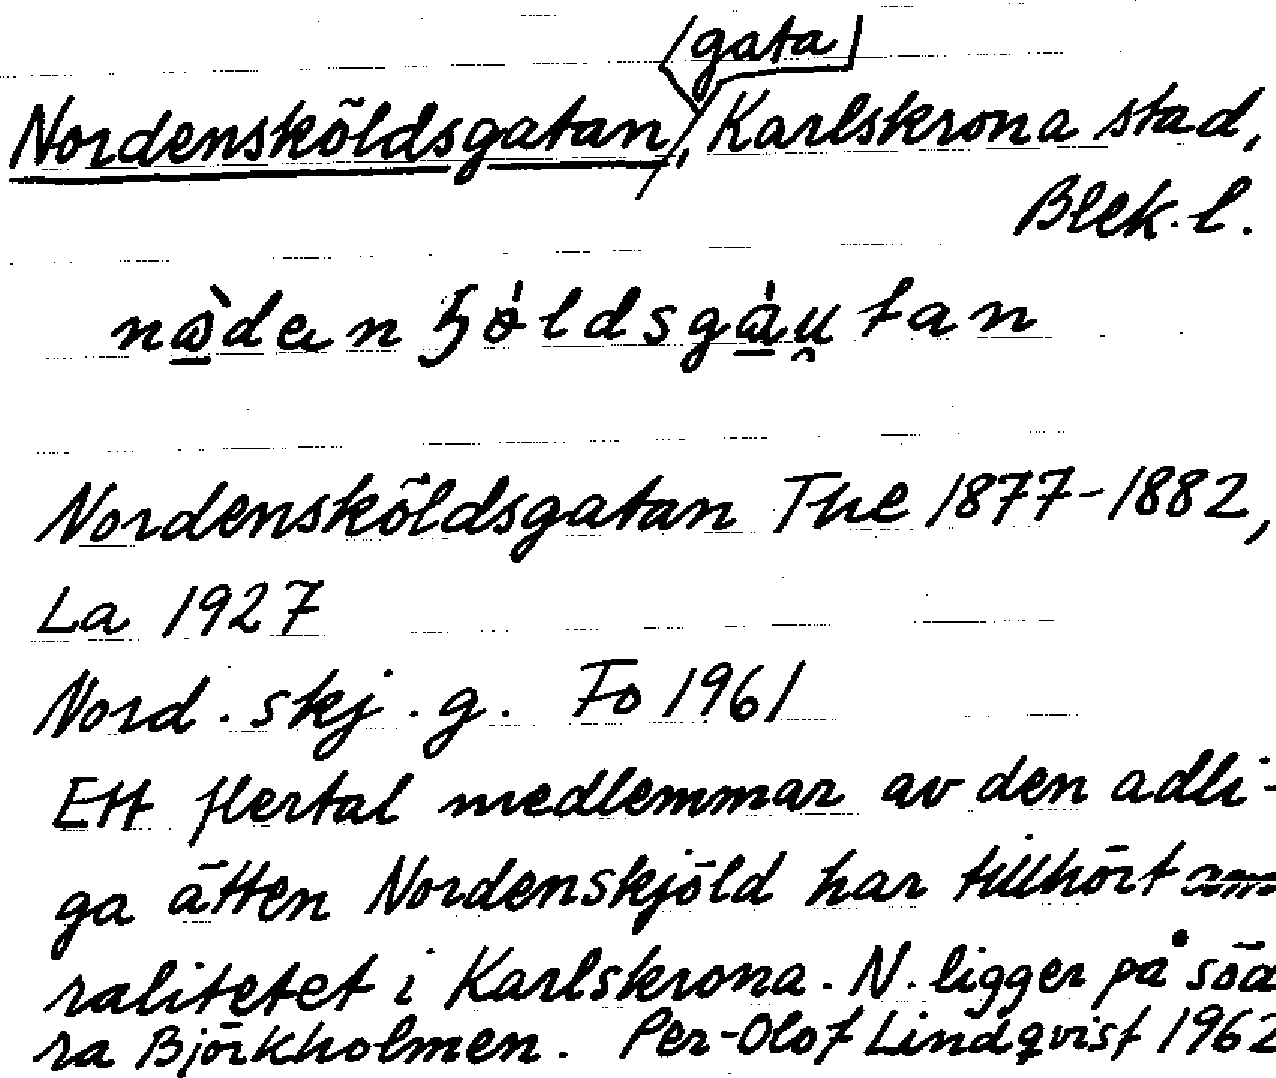 /gata/
Nordensköldsgatan, Karlskrona stad,
Blek. l.
Nordensköldsgatan The 1877-1882,
La 1927
Nord. skj. g. Fo 1961
Ett flertal medlemmar av den adli-
ga ätten Nordenskjöld har tillhört
ralitetet i Karlskrona. N. ligger på söd
ra Björkholmen. Per-Olof Lindqvist 1962